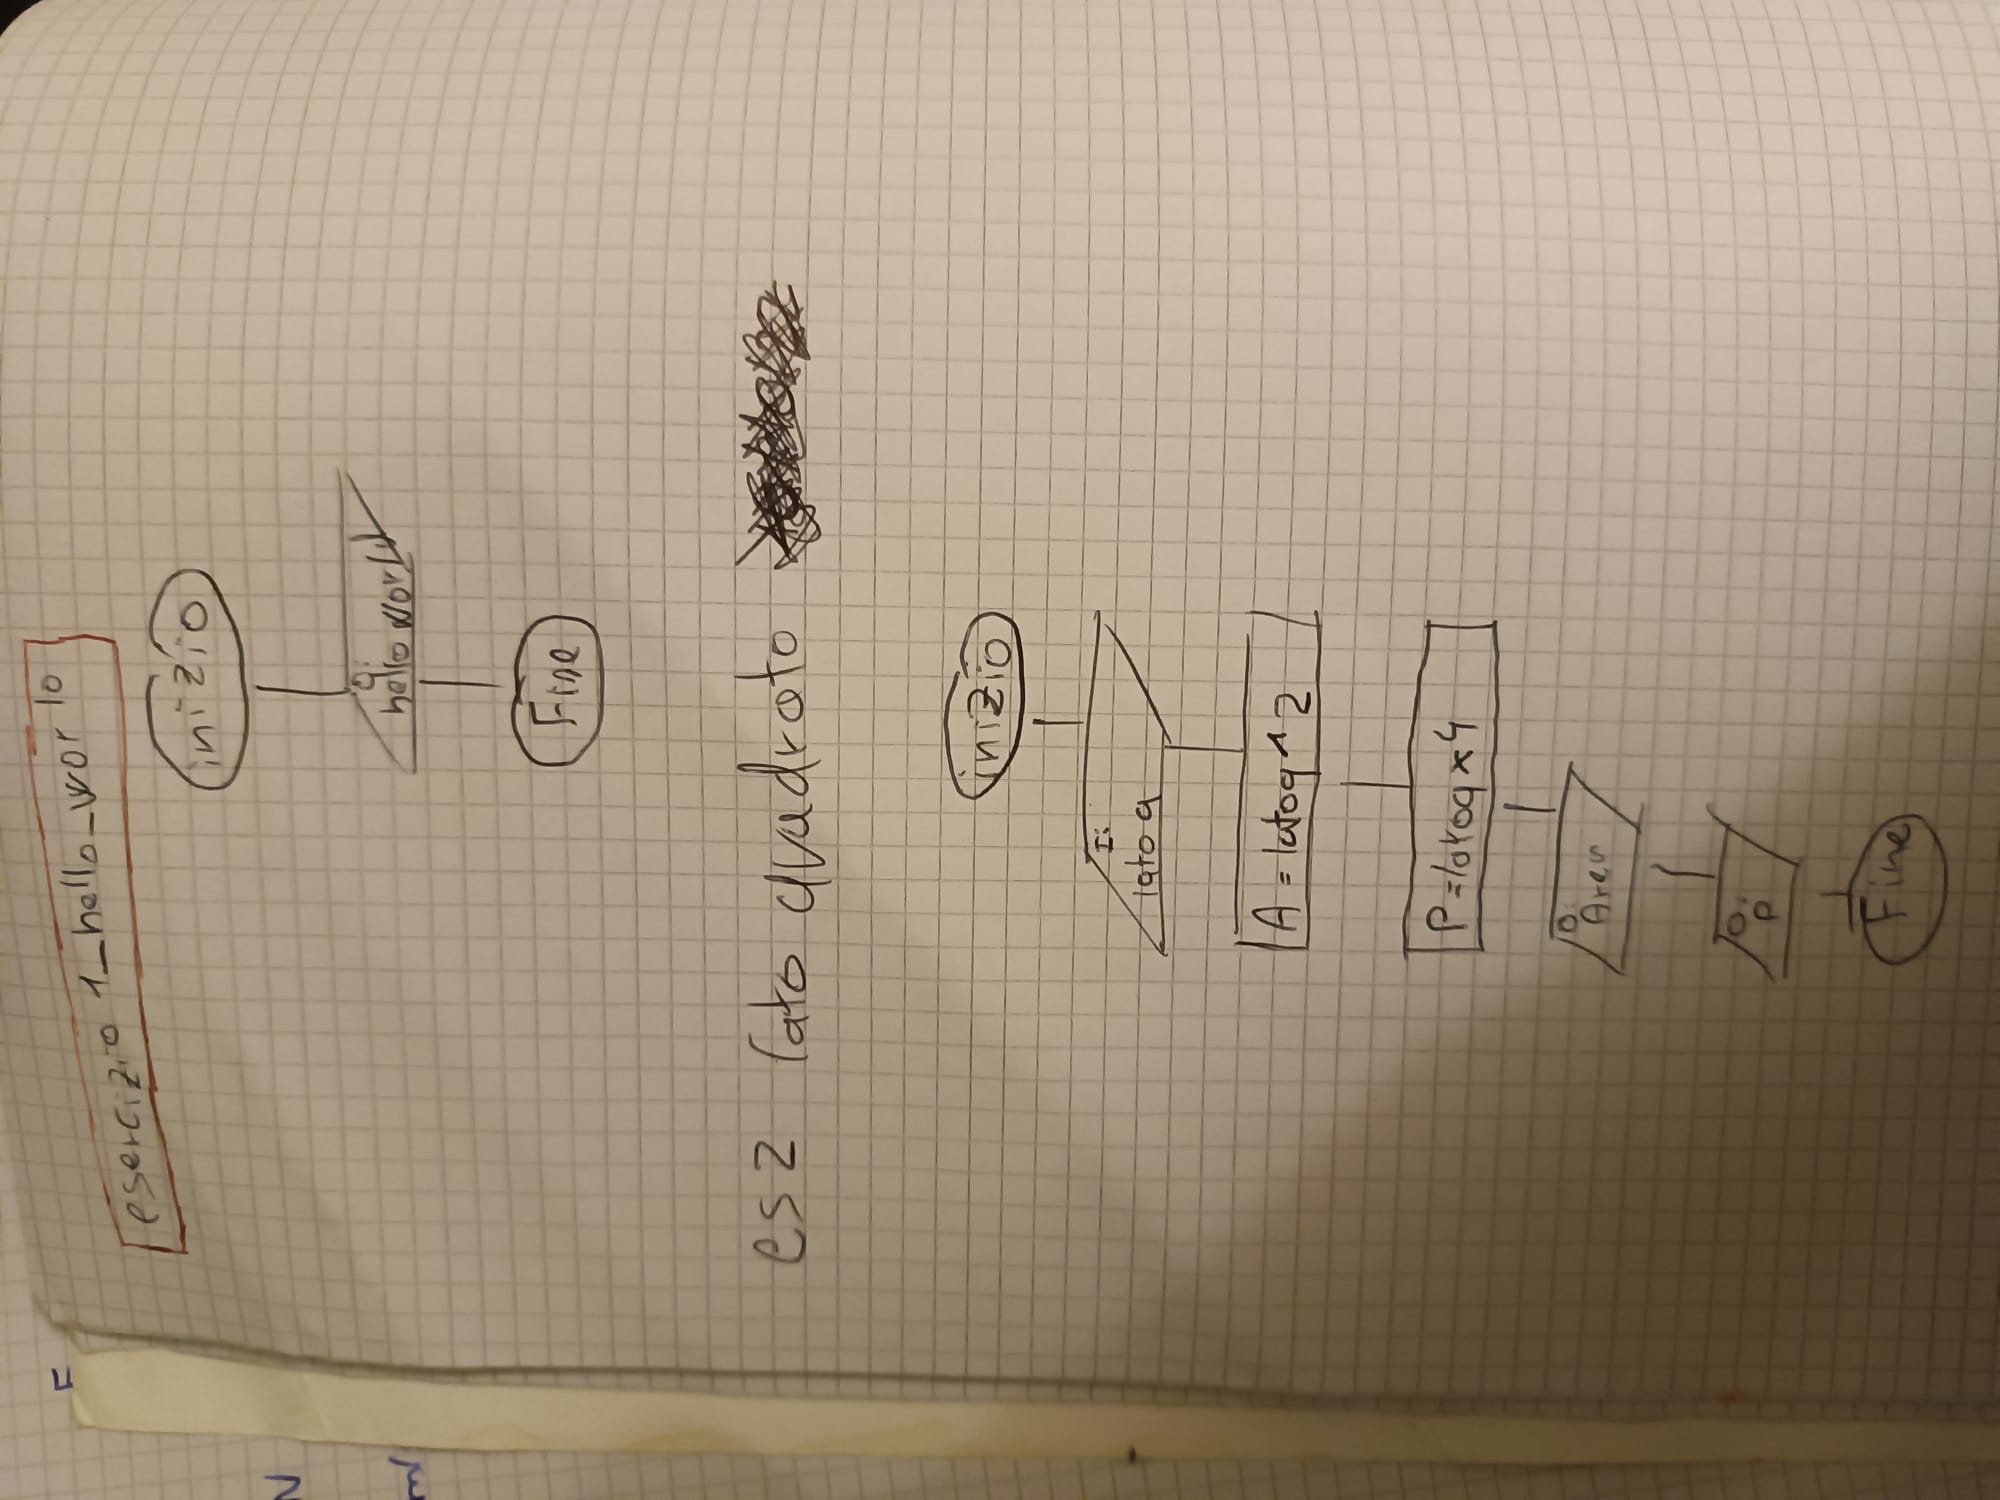 esercizio 1_hello_worlo
inizio
O:
hello world
Fine
es 2 lato quadrato
inizio
I:
latoq
A = latoq ^ 2
P = latoq x 4
O:
Area
O:
P
Fine